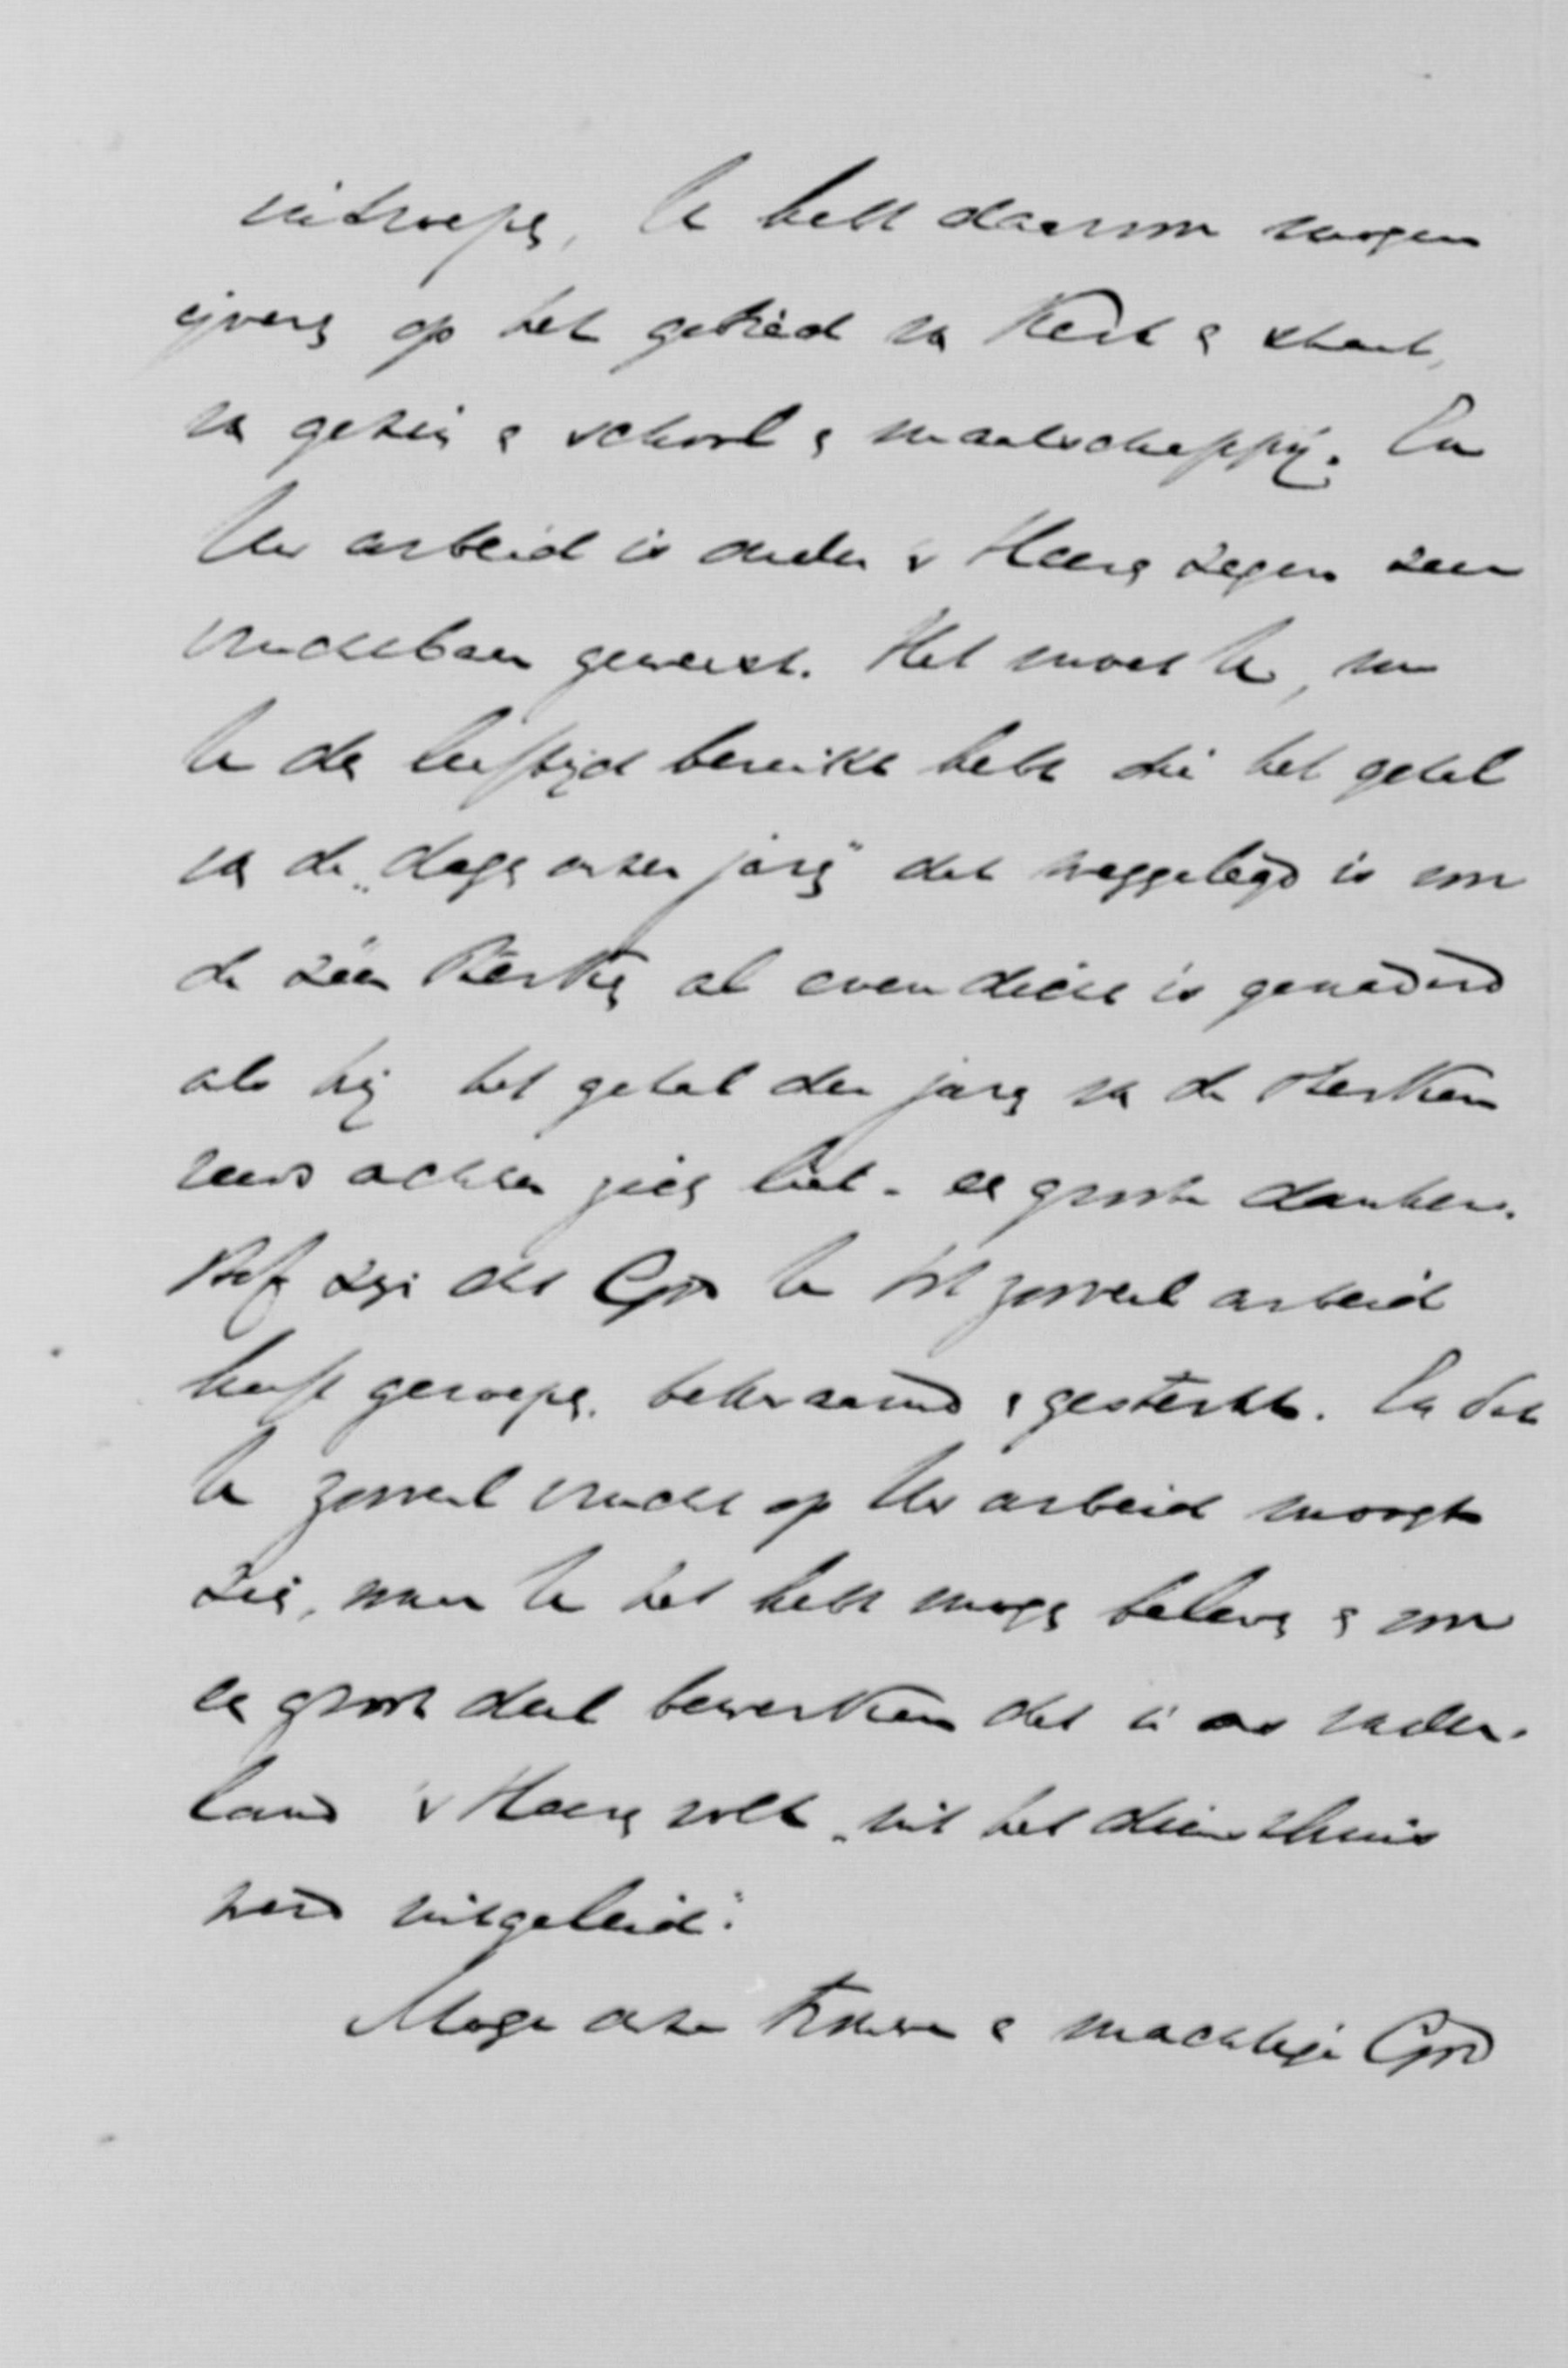 uitroepen, U hebt daarom mogen
ijveren op het gebied van Kerk en staat,
van gezin en school en maatschappij. En
Uw arbeid is onder 's Heeren zegen zeer
vruchtbaar geweest. Het moet U, nu
U den leeftijd bereikt hebt die het getal
van de „dagen onzer jaren" dat weggelegd is om
de zeer sterken al even dicht is genaderd
als hij het getal der jaren van de sterken
reeds achter zich liet - en groote danken.
Prof zijn dat God U tot zooveel arbeid
heeft geroepen, bekwaamd en gesterkt. En dat
U zooveel vrucht op Uw arbeid moogt
zien, nu U het hebt mogen beleven en om
een groot deel bewerken dat in ons vader-
land 's Heeren volk „uit het diensthuis
werd uitgeleid".
Moge onze trouwe en machtige God